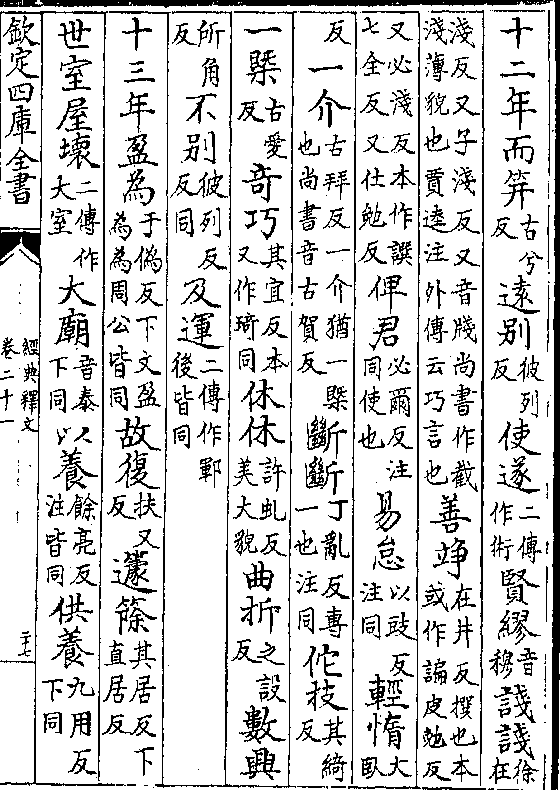 十二年而笄古兮反遠別彼列反使遂二傳作術賢繆音穆諓諓徐在
淺反又子淺反又音牋尚書作截淺薄貌也賈逵注外傳云巧言也善竫在井反撰也本或作諞皮勉反
又必淺反本作諓七全反又仕勉反俾君必爾反注同使也易怠以豉反注同輕惰大臥
反一介古拜反一介猶一槩也尚書音古賀反斷斷丁亂反專一也注同佗技其綺反
一槩古愛反奇巧其宜反本又作琦同休休許虬反美大貌曲折之設反數興
所角反不別彼列反反同及運二傳作鄆後皆同
十三年盈為于偽反下文盈為為周公皆同故復扶又反蘧篨其居反下直居反
世室屋壞二傳作大室大廟音泰下同以養餘亮反注皆同供養九用反下同
欽定四庫全書
經典釋文
卷二十一
二十七